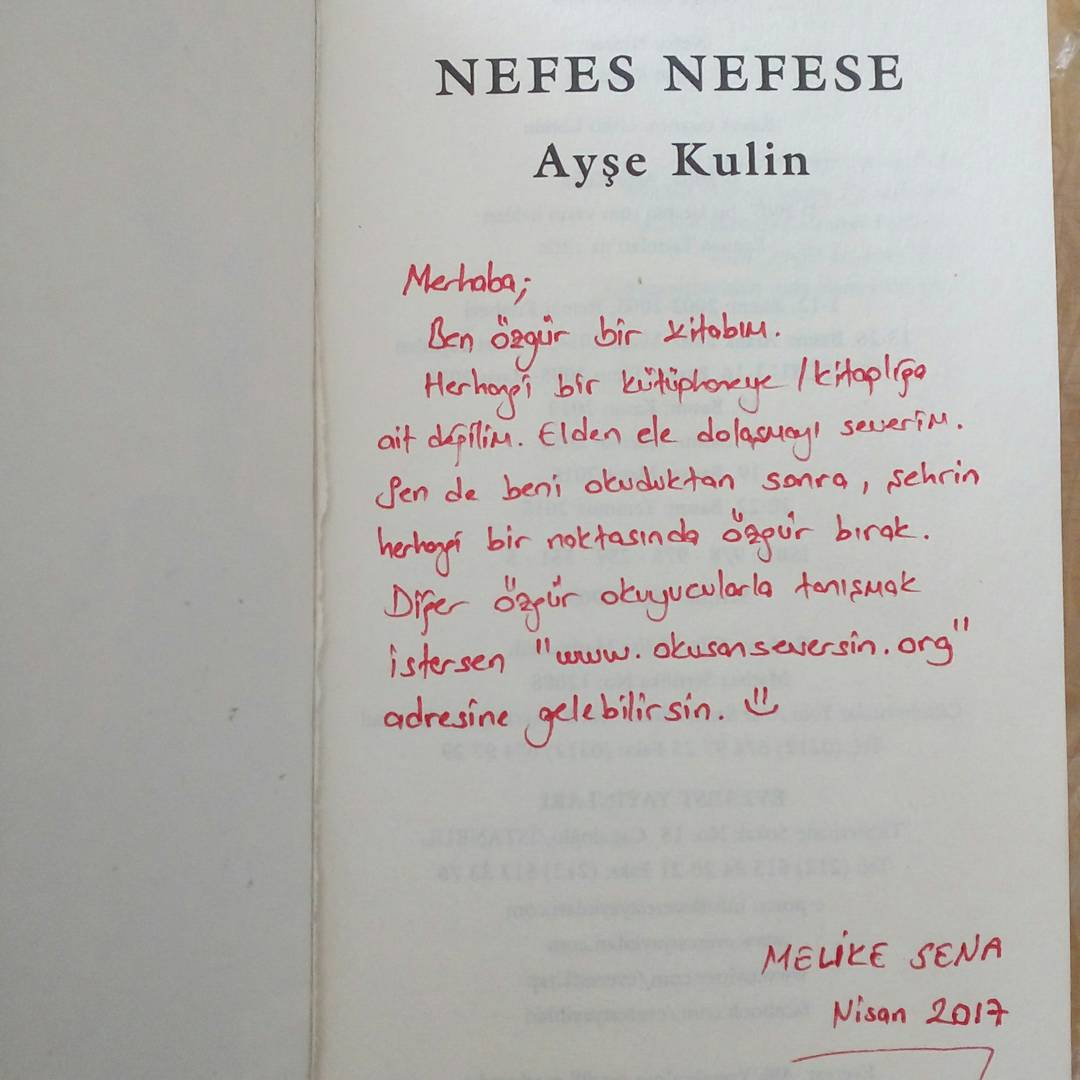 NEFES NEFESE
Ayşe Kulin
Merhaba;
Ben özgür bir kitabım.
Herhangi bir kütüphaneye / kitaplığa
ait değilim. Elden ele dolaşmayı severim.
Sen de beni okuduktan sonra, şehrin
herhangi bir noktasında özgür bırak.
Diğer özgür okuyucularla tanışmak
istersen "www.okusanseversin.org"
adresine gelebilirsin.
MELİKE SENA
Nisan 2017